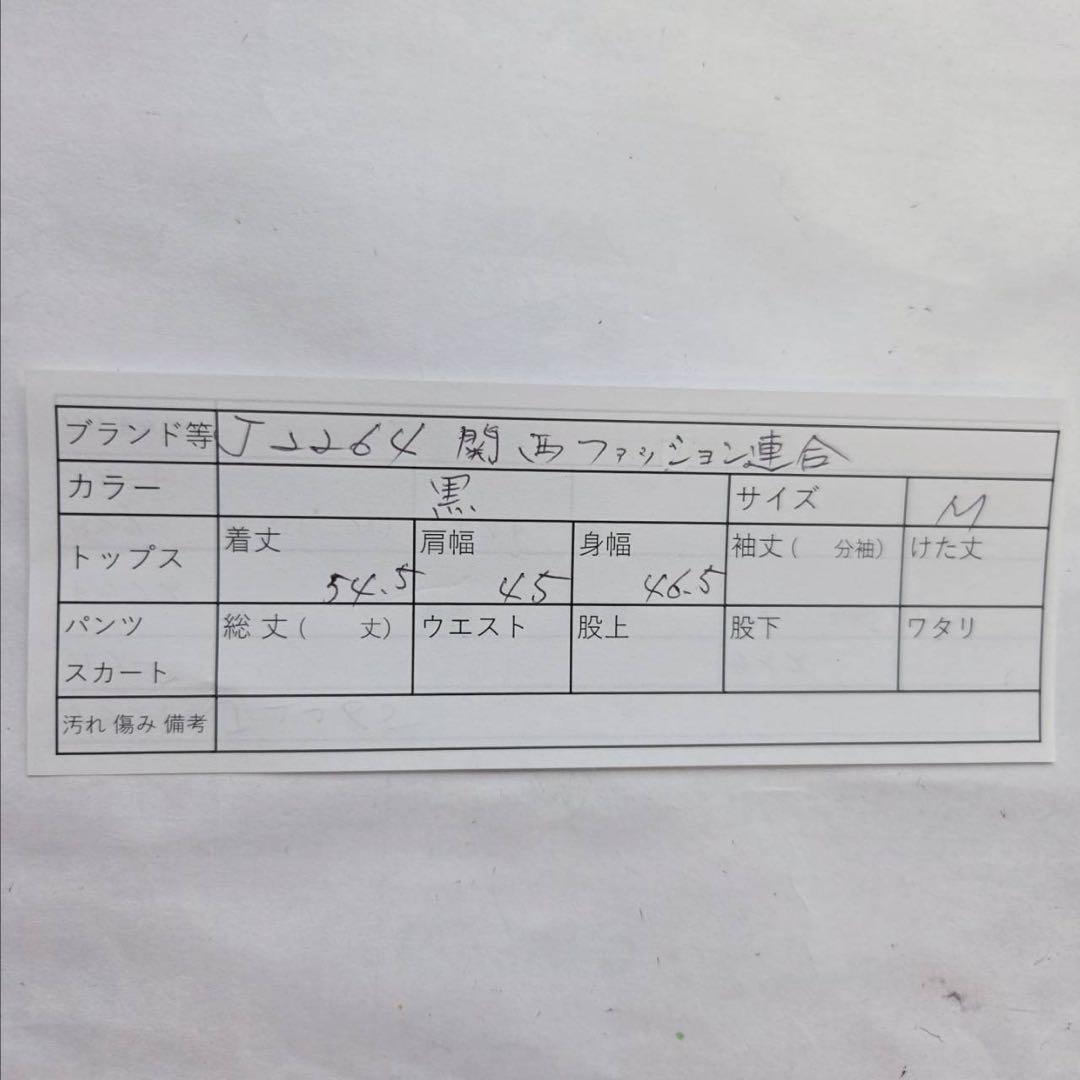 ブランド等 J2264 関西ファッション連合
カラー 黒 サイズ M
トップス 着丈 54.5 肩幅 45 身幅 46.5 袖丈( 分袖) けた丈
パンツ 総丈( 丈) ウエスト 股上 股下 ワタリ
スカート
汚れ 傷み 備考